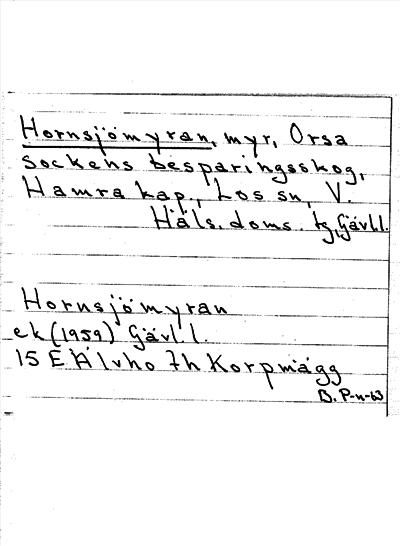 Hornsjömyran, myr, Orsa
sockens besparingsskog,
Hamra kap., Los sn, V.
Häls. doms. tg, Gävl.l.
Hornsjömyran
ek (1959) Gävl.l.
15 E Älvho 7h Korpmägg
B. P-n-63